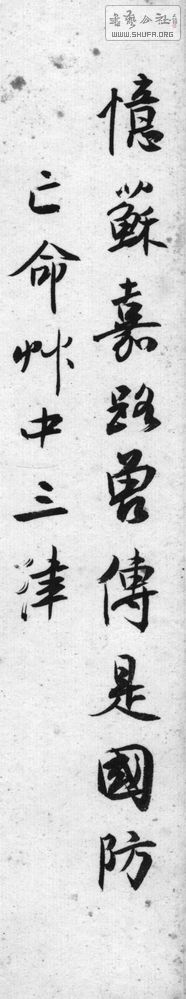 憶蘇嘉路曾傳是國防
亡命艸中三津
書藝公社
WWW.SHUFA.ORG